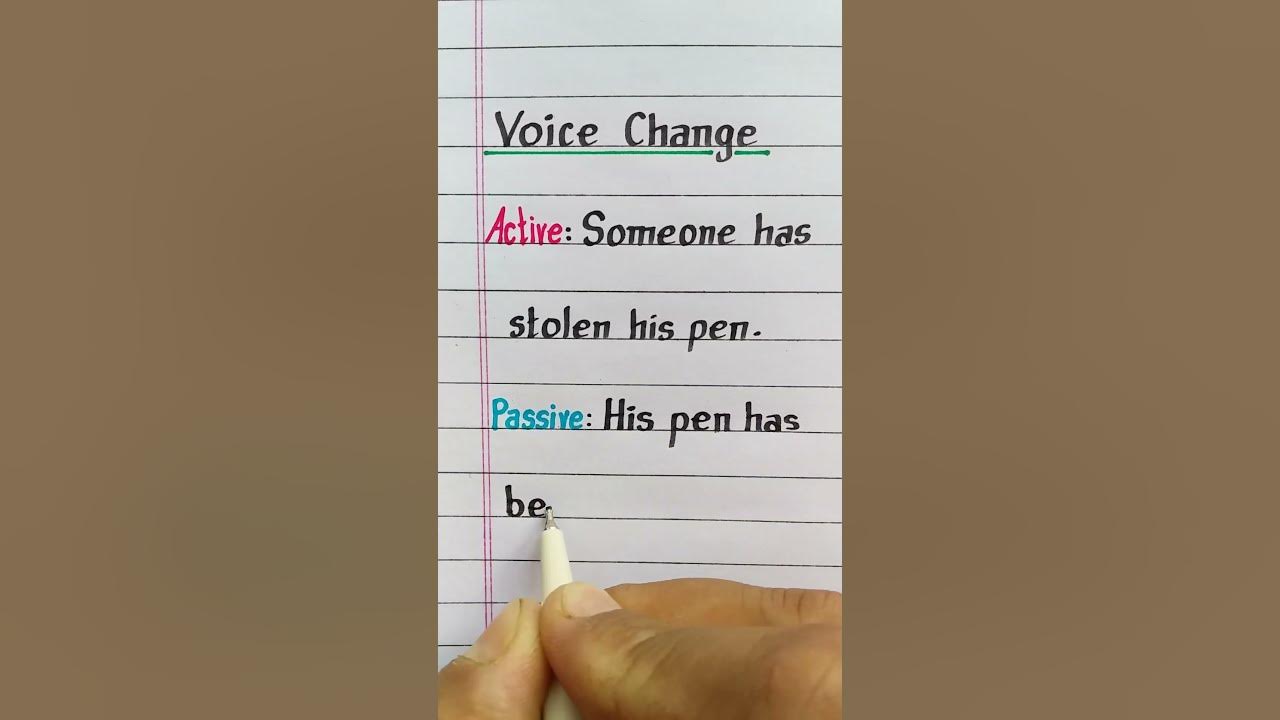 Voice Change
Active: Someone has
stolen his pen.
Passive: His pen has
be